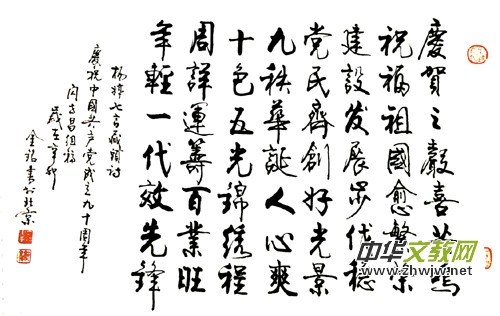 慶賀之聲喜
祝福祖國愈繁榮
建設发展步代穩
党民齊創好光景
九秩華誕人心爽
十色五光錦綉程
周詳運籌百業旺
年輕一代效先鋒
七言藏頭诗
慶祝中國共产党成立九十周年
志昌组稿
歲在辛卯
金 書於北京
中华文教网
www.zhwjw.net